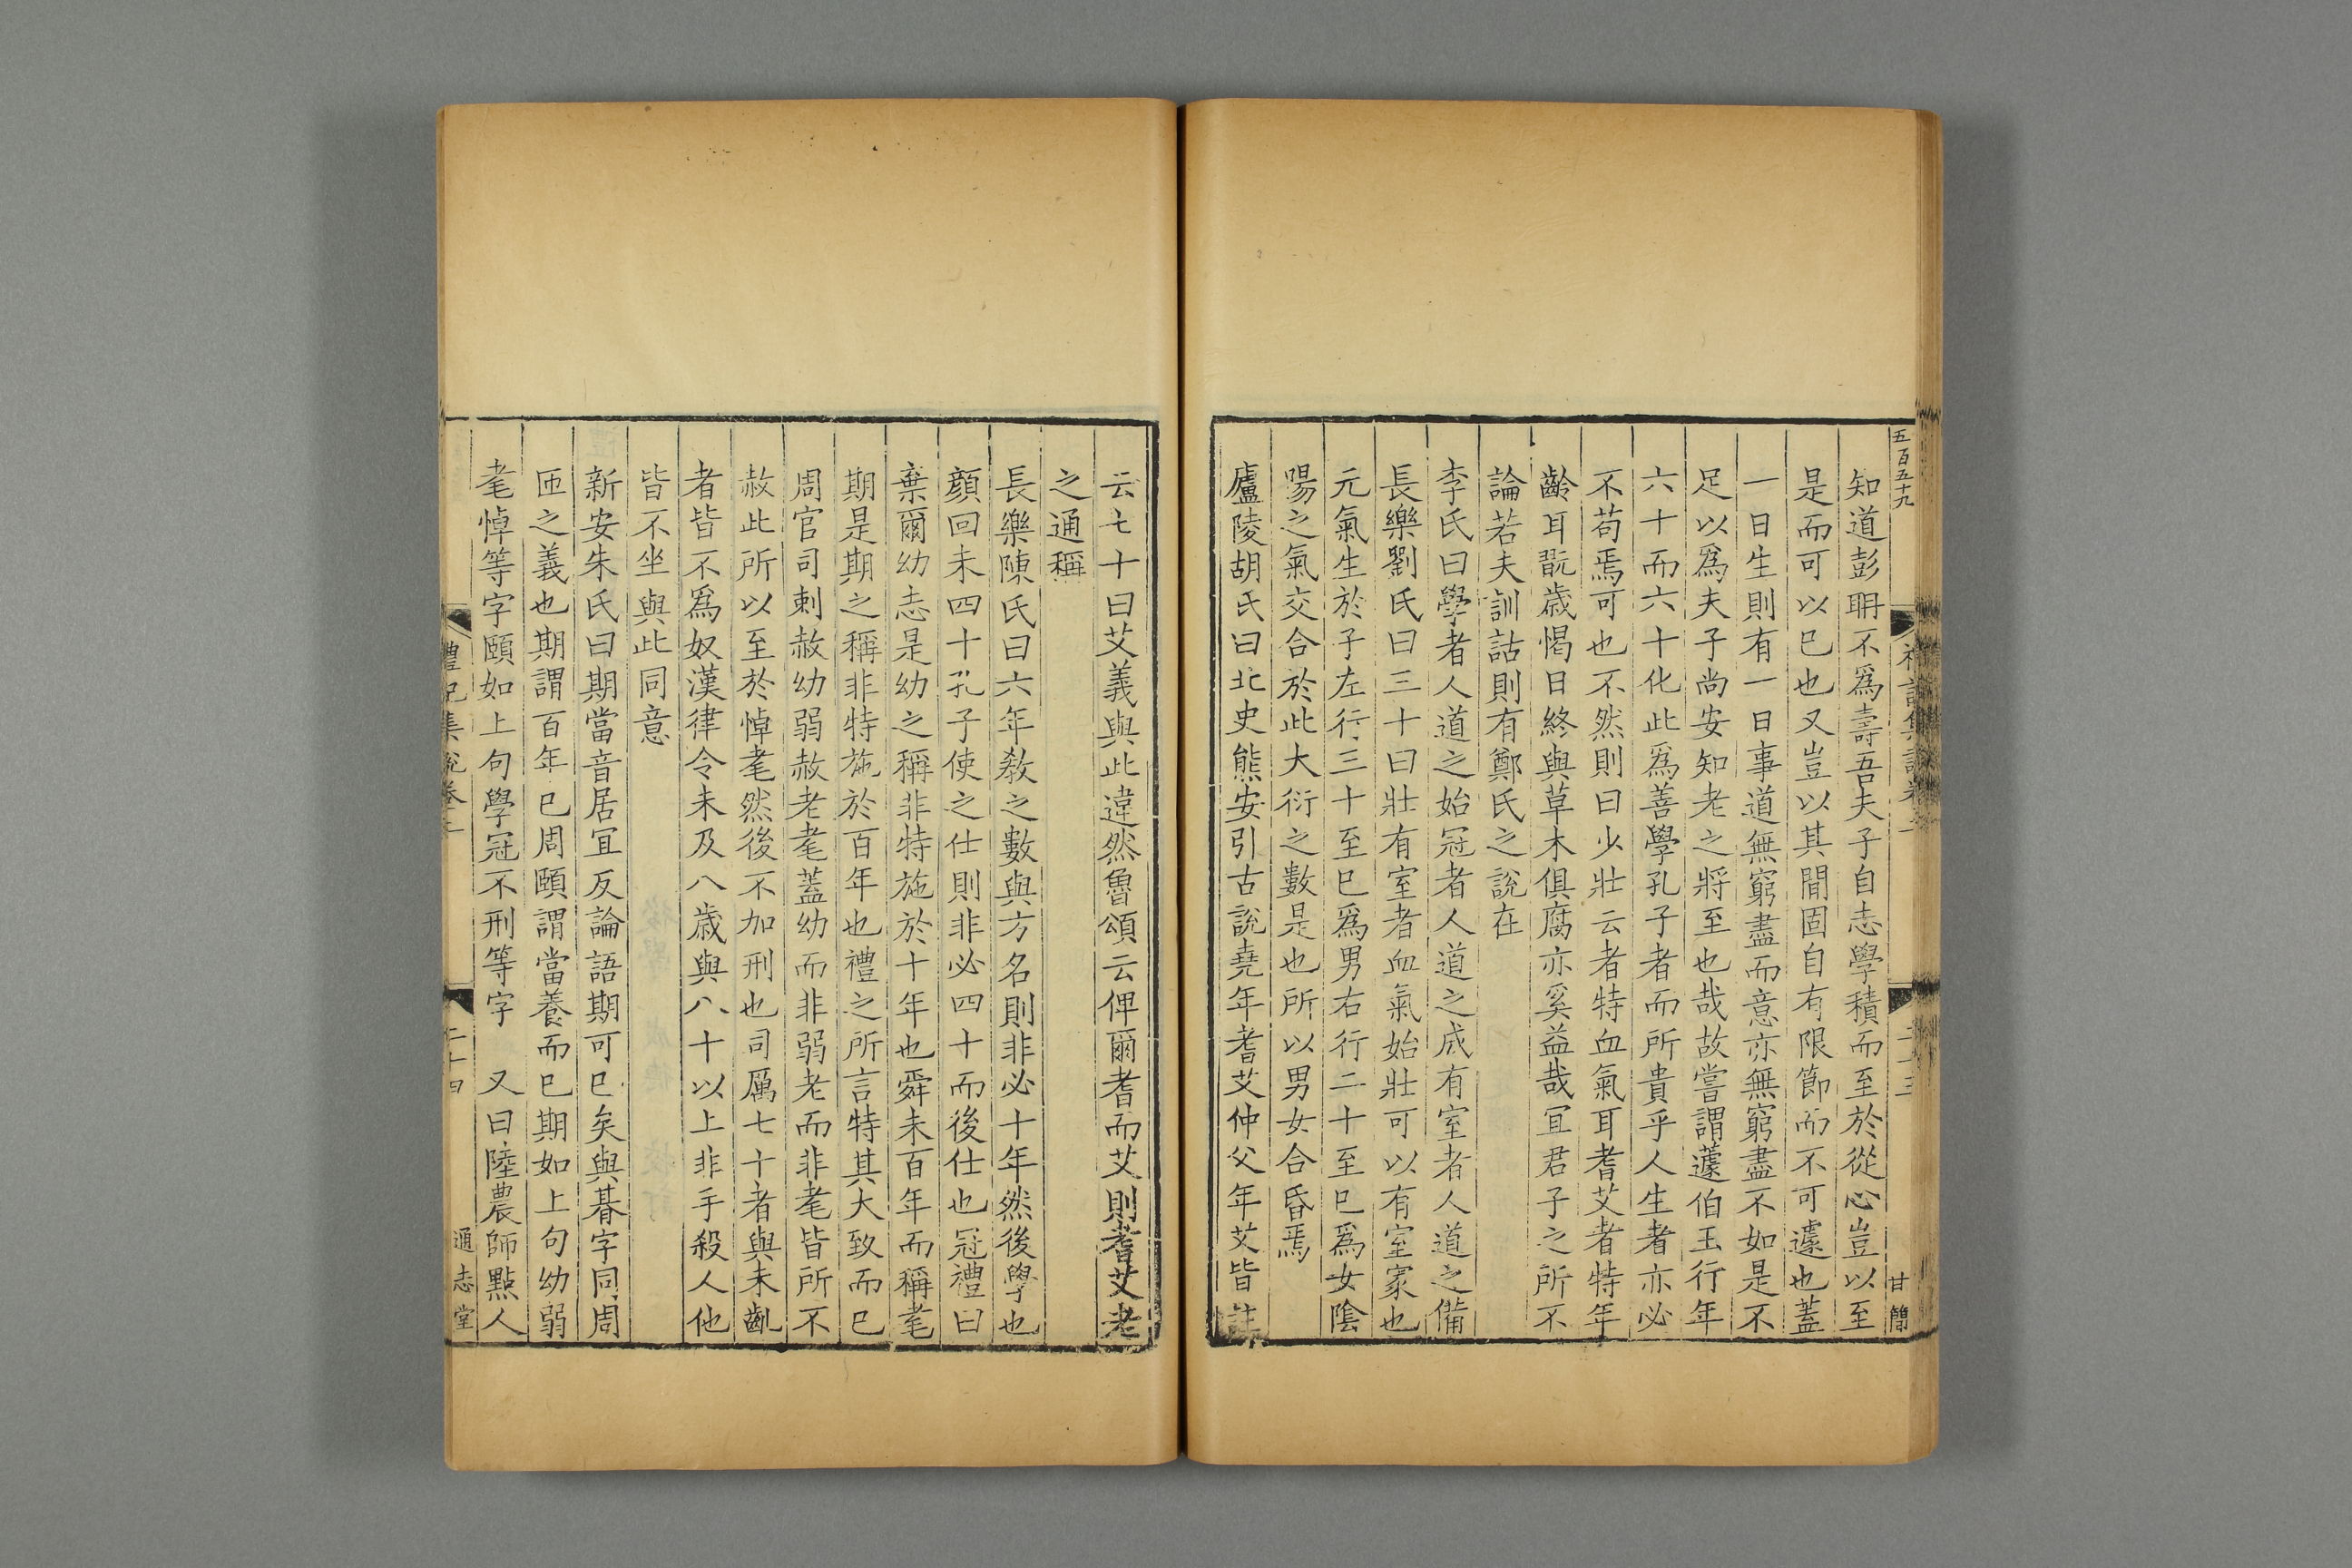 五百五十九
甘簡
知道彭聃不爲壽吾夫子自志學積而至於從心豈以至
是而可以已也又豈以其間固自有限節而不可遽也蓋
一日生則有一日事道無窮盡而意亦無窮盡不如是不
足以爲夫子尚安知老之將至也哉故嘗謂蘧伯玉行年
六十而六十化此爲善學孔子者而所貴乎人生者亦必
不苟焉可也不然則曰少壯云者特血氣耳耆艾者特年
齡耳翫歳愒日終與草木俱腐亦奚益哉冝君子之所不
論若夫訓詁則有鄭氏之說在
李氏曰學者人道之始冠者人道之成有室者人道之備
長樂劉氏曰三十曰壯有室者血氣始壯可以有室家也
元氣生於子左行三十至巳爲男右行二十至巳爲女陰
陽之氣交合於此大衍之數是也所以男女合昏焉
廬陵胡氏曰北史熊安引古說堯年耆艾仲父年艾皆
云七十曰艾義與此違然魯頌云俾爾耆而艾則耆艾老
之通稱
長樂陳氏曰六年敎之數與方名則非必十年然後學也
顔回未四十孔子使之仕則非必四十而後仕也冠禮曰
棄爾幼志是幼之稱非特施於十年也舜未百年而稱耄
期是期之稱非特施於百年也禮之所言特其大致而已
周官司刺赦幼弱赦老耄蓋幼而非弱老而非耄皆所不
赦此所以至於悼耄然後不加刑也司厲七十者與未齓
者皆不爲奴漢律令未及八歳與八十以上非手殺人他
皆不坐與此同意
新安朱氏曰期當音居冝反論語期可已矣與朞字同周
匝之義也期謂百年已周頤謂當養而已期如上句幼弱
耄悼等字頤如上句學冠不刑等字　又曰陸農師點人
禮記集說卷
二十四
通志堂